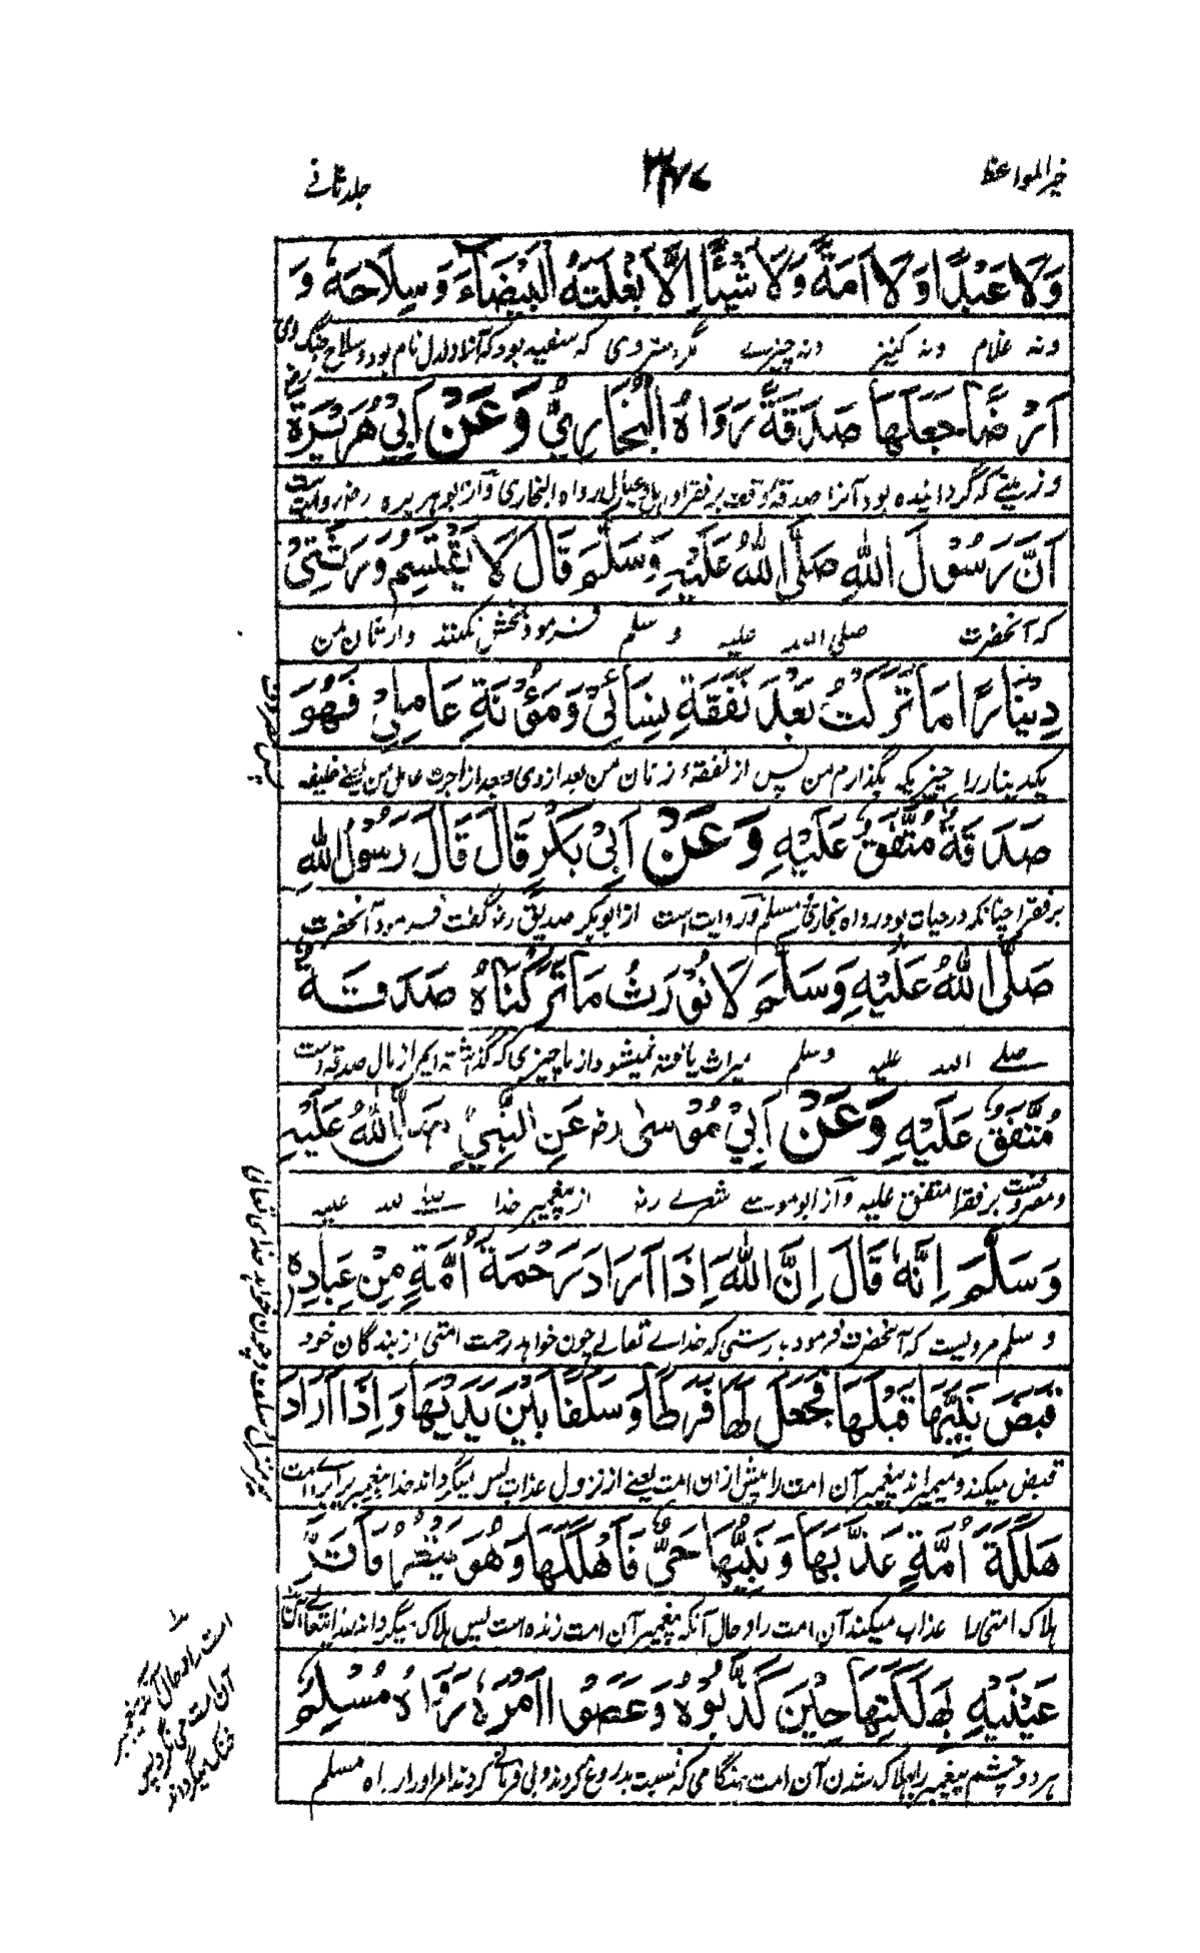 خیر المواعظ
۳۷۷
جلد ثانے
وَلَا عَبْدًا وَلَا اَمَةً وَلَا شَيْئًا اِلَّا بَغْلَتَهُ الْبَيْضَاءَ وَسِلَاحَهٗ وَ
ونہ غلام ونہ کنیز ونہ چیزے مگر مشروی کہ سفید بود کہ آنرا دلدل نام بود و سلاح جنگ وی
اَرْضًا جَعَلَهَا صَدَقَةً رَوَاهُ الْبُخَارِيُّ وَعَنْ اَبِيْ هُرَيْرَةَ
و زمینے کہ گردانیدہ بود آنرا صدقہ وقف بر فقرا رواہ البخاری و از ابو ہریرہ رض روایت ست
اَنَّ رَسُوْلَ اللهِ صَلَّى اللهُ عَلَيْهِ وَسَلَّمَ قَالَ لَا يَقْتَسِمُ وَرَثَتِيْ
کہ آنحضرت صلی اللہ علیہ و سلم فرمود بخش نکنند وارثان من
دِيْنَارًا مَا تَرَكْتُ بَعْدَ نَفَقَةِ نِسَائِيْ وَمَئُوْنَةِ عَامِلِيْ فَهُوَ
یکدینار را چیزیکہ بگذارم من پس از نفقہء زنان من بعد از وی و بعد از اجرت عامل من یعنے خلیفہ
صَدَقَةٌ مُتَّفَقٌ عَلَيْهِ وَعَنْ اَبِيْ بَكْرٍ قَالَ قَالَ رَسُوْلُ اللهِ
بر فقرا چنانکہ در حیات بود رواہ بخاری و مسلم و روایت است از ابو بکر صدیق رض گفت فرمود آنحضرت
صَلَّى اللهُ عَلَيْهِ وَسَلَّمَ لَا نُوْرَثُ مَا تَرَكْنَاهُ صَدَقَةٌ
صلے اللہ علیہ وسلم میراث یافتہ نمیشود از ما چیزی کہ گذاشتہ ایم از مال صدقہ است
مُتَّفَقٌ عَلَيْهِ وَعَنْ اَبِيْ مُوْسٰى رض عَنِ النَّبِيِّ صَلَّى اللهُ عَلَيْهِ
بر فقرا متفق علیہ و از ابو موسے شعرے رض از پیغمبر خدا صلے اللہ علیہ
وَسَلَّمَ اِنَّهٗ قَالَ اِنَّ اللهَ اِذَا اَرَادَ رَحْمَةَ اُمَّةٍ مِنْ عِبَادِهٖ
و سلم مرویست کہ آنحضرت فرمود بدرستی کہ خداے تعالے چون خواہد رحمت امتی از بندگان خود
قَبَضَ نَبِيَّهَا قَبْلَهَا فَجَعَلَ لَهَا فَرَطًا وَسَلَفًا بَيْنَ يَدَيْهَا وَاِذَا اَرَادَ
قبض میکند و میمیراند پیغمبر آن امت را پیش ازان امت یعنے از نزول عذاب پس میگرداند خدا پیغمبر برای امت
هَلَكَةَ اُمَّةٍ عَذَّبَهَا وَنَبِيُّهَا حَيٌّ فَاَهْلَكَهَا وَهُوَ يَنْظُرُ فَاَقَرَّ
ہلاک امتی را عذاب میکند آن امت را و حال آنکہ پیغمبر آن امت زندہ است پس ہلاک میگرداند
عَيْنَيْهِ بِهَلَكَتِهَا حِيْنَ كَذَّبُوْهُ وَعَصَوْا اَمْرَهٗ رَوَاهُ مُسْلِمٌ
ہر دو چشم پیغمبر را بہلاک شدن آن امت ہنگامی کہ نسبت بدروغ کردند وبی فرمانے کردند امر اورا رواہ مسلم
امت را و حال آنکہ پیغمبر
آن امت می نگرد پس
خنک میگرداند